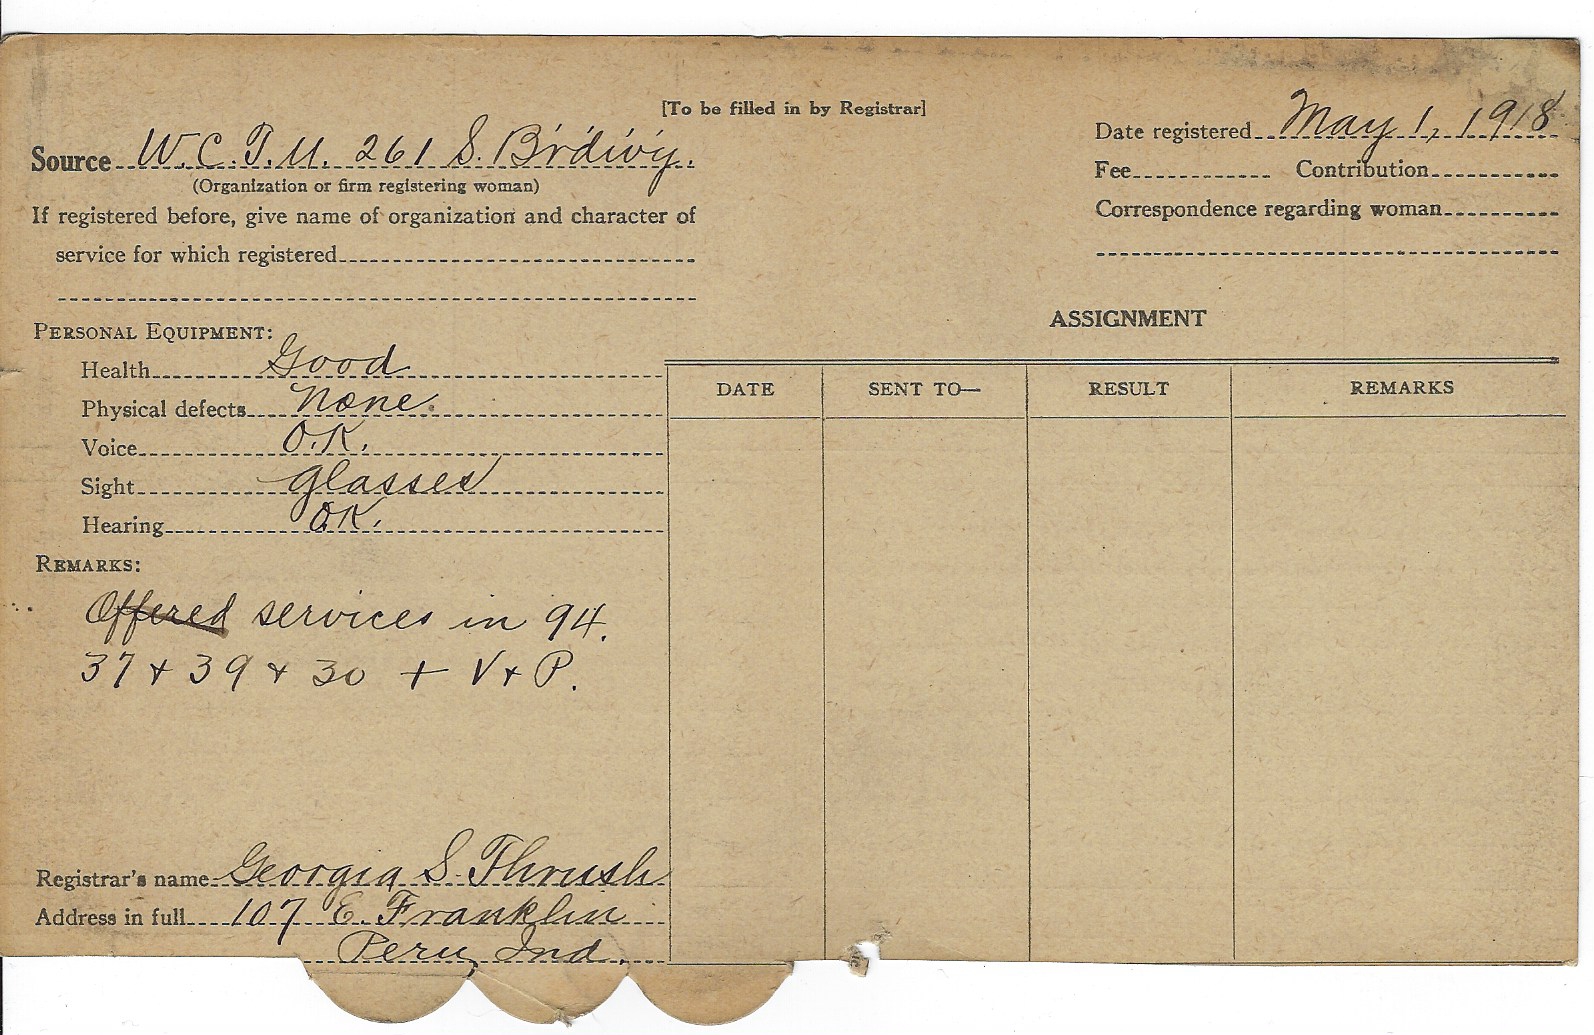 [To be filled in by Registrar]
Source W. C. T. U. 261 S. Br'd'w'y.
(Organization or firm registering woman)
If registered before, give name of organization and character of
service for which registered
Date registered May 1, 1918
Fee Contribution
Correspondence regarding woman
PERSONAL EQUIPMENT:
Health Good
Physical defects None.
Voice O.K.
Sight glasses
Hearing O.K.
REMARKS:
Offered services in 94.
37 + 39 + 30 + V + P.
Registrar's name Georgia S. Thrush
Address in full 107 E. Franklin
Peru, Ind.
ASSIGNMENT
DATE SENT TO— RESULT REMARKS